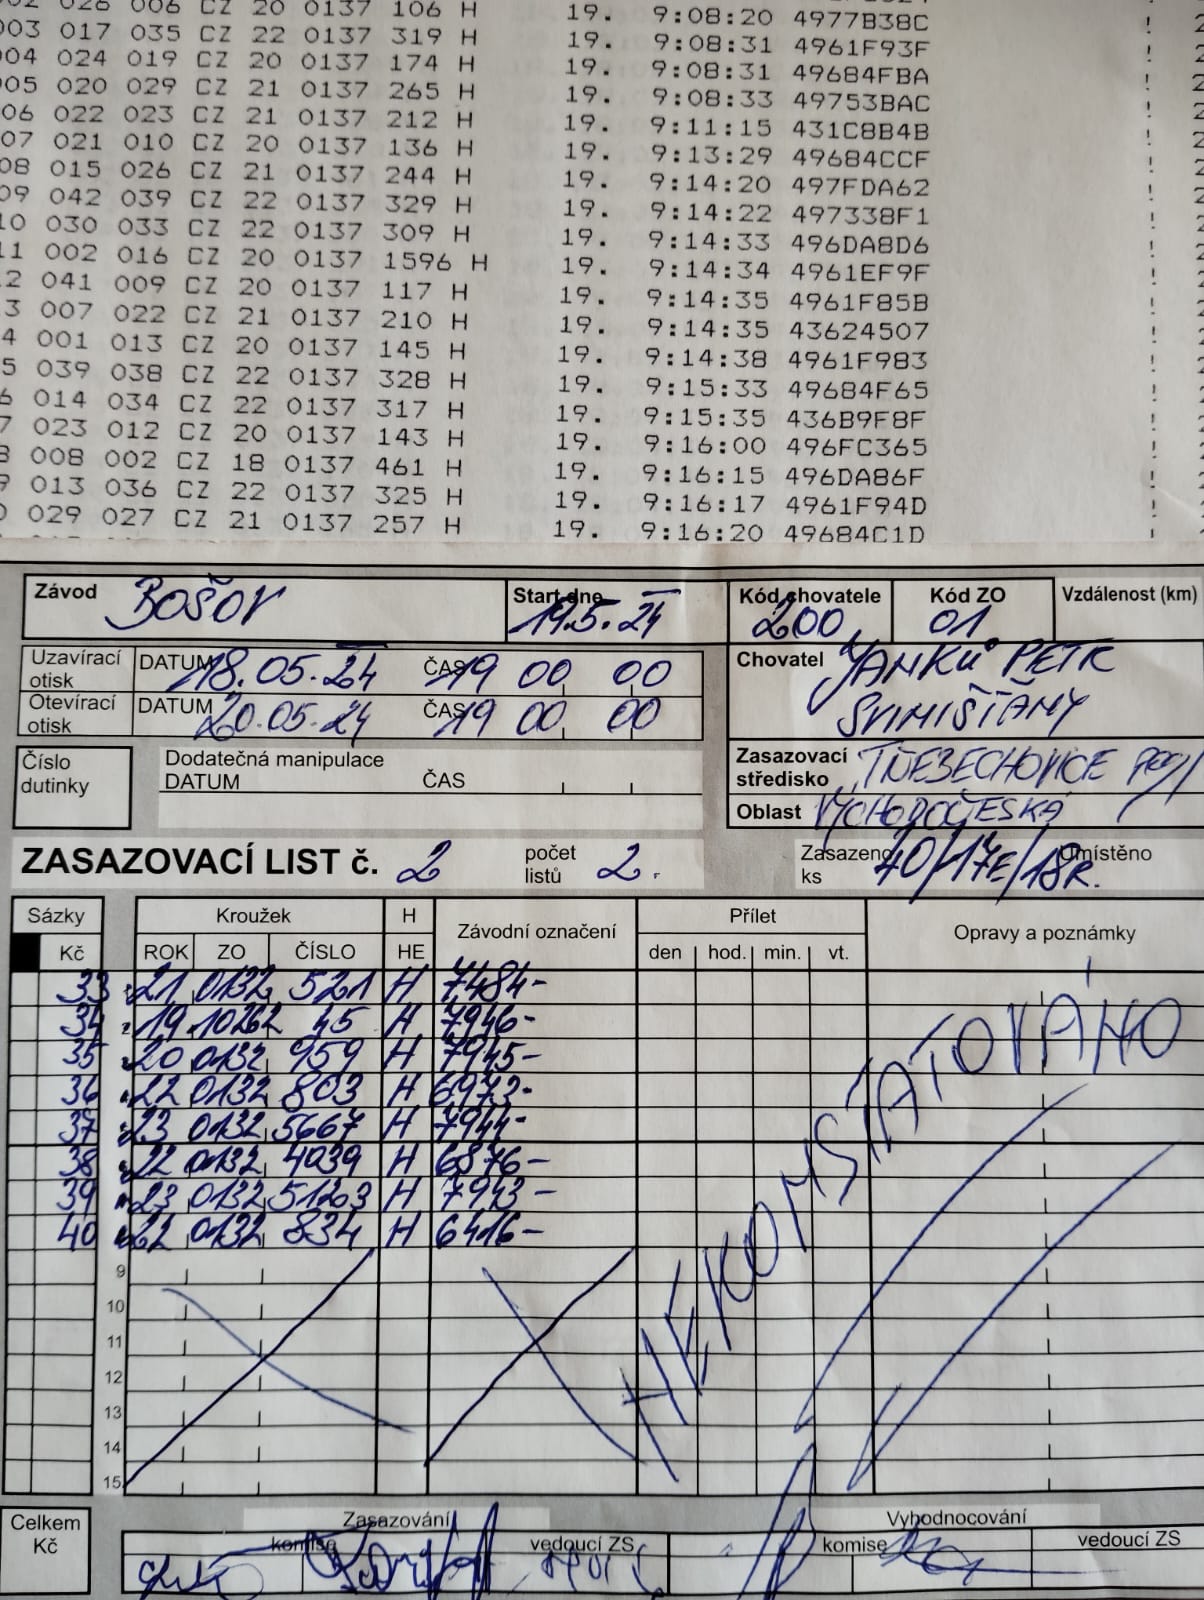 028 006 CZ 20 0137 106 H 19. 9:08:20 4977B38C !
003 017 035 CZ 22 0137 319 H 19. 9:08:31 4961F93F !
004 024 019 CZ 20 0137 174 H 19. 9:08:31 49684FBA !
005 020 029 CZ 21 0137 265 H 19. 9:08:33 49753BAC !
06 022 023 CZ 21 0137 212 H 19. 9:11:15 431C8B4B !
07 021 010 CZ 20 0137 136 H 19. 9:13:29 49684CCF !
08 015 026 CZ 21 0137 244 H 19. 9:14:20 497FDA62 !
09 042 039 CZ 22 0137 329 H 19. 9:14:22 497338F1 !
10 030 033 CZ 22 0137 309 H 19. 9:14:33 496DA8D6 !
11 002 016 CZ 20 0137 1596 H 19. 9:14:34 4961EF9F !
2 041 009 CZ 20 0137 117 H 19. 9:14:35 4961F85B !
3 007 022 CZ 21 0137 210 H 19. 9:14:35 43624507 !
4 001 013 CZ 20 0137 145 H 19. 9:14:38 4961F983 !
5 039 038 CZ 22 0137 328 H 19. 9:15:33 49684F65 !
6 014 034 CZ 22 0137 317 H 19. 9:15:35 436B9F8F !
7 023 012 CZ 20 0137 143 H 19. 9:16:00 496FC365 !
8 008 002 CZ 18 0137 461 H 19. 9:16:15 496DA86F !
9 013 036 CZ 22 0137 325 H 19. 9:16:17 4961F94D !
029 027 CZ 21 0137 257 H 19. 9:16:20 49684C1D !
Závod BOŠOV Start dne 19.5.24 Kód chovatele 200 Kód ZO 01 Vzdálenost (km)
Uzavírací otisk DATUM 18.05.24 ČAS 19 00 00
Otevírací otisk DATUM 20.05.24 ČAS 19 00 00
Chovatel JANKŮ PETR
SVINIŠŤANY
Číslo dutinky
Dodatečná manipulace
DATUM ČAS
Zasazovací středisko TŘEBECHOVICE
Oblast VÝCHODOČESKÁ
ZASAZOVACÍ LIST č. 2 počet listů 2. Zasazeno ks 40/17E/18R. Umístěno
Sázky Kroužek H Závodní označení Přílet Opravy a poznámky
Kč ROK ZO ČÍSLO HE den hod. min. vt.
33 21 0132 521 H 7484-
34 19 10262 45 H 7946-
35 20 0132 959 H 7945-
36 22 0132 803 H 6973-
37 23 0132 5667 H 7944-
38 22 0132 4039 H 6876-
39 23 0132 51203 H 7943-
40 22 0132 834 H 6416-
NEKONSTATOVÁNO
9
10
11
12
13
14
15
Celkem Kč
Zasazování Vyhodnocování
komise vedoucí ZS komise vedoucí ZS